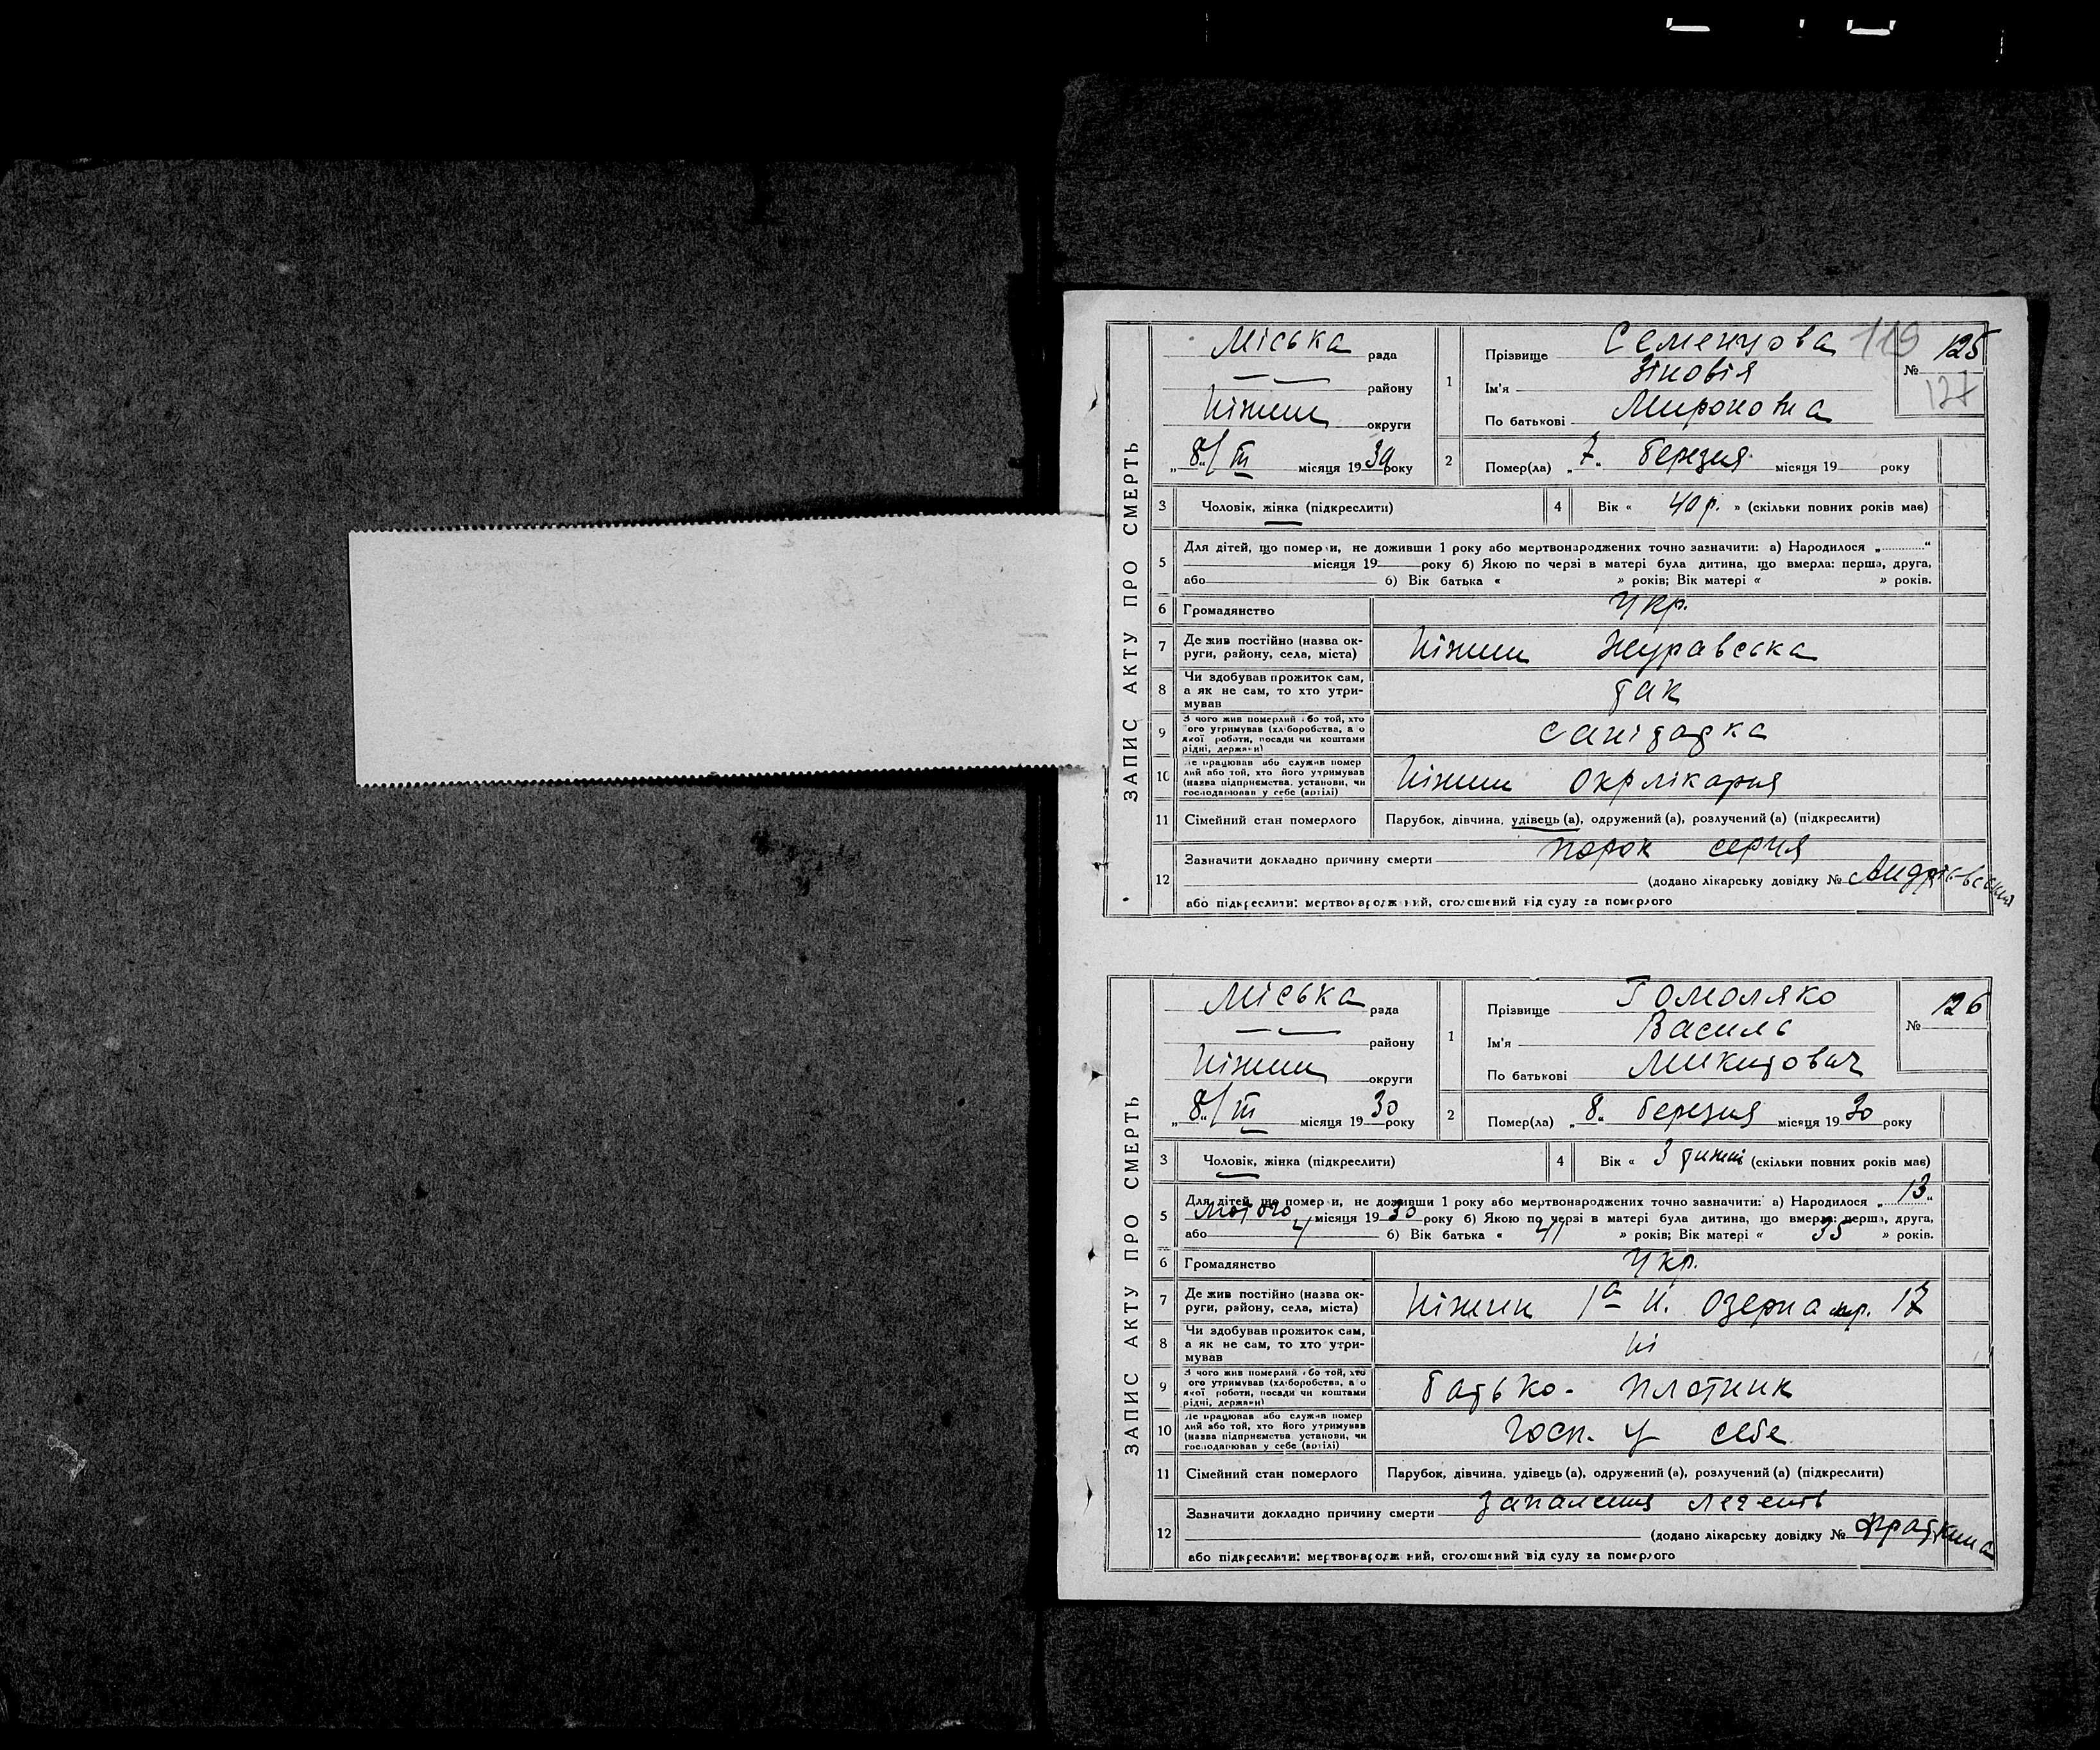 ЗАПИС АКТУ ПРО СМЕРТЬ
Міська рада
району
Ніжин округи
„8“/III місяця 1930 року
1
Прізвище Семенцова
Ім'я Зіновія
По батькові Мироновна
119
№ 125
127
2 Помер(ла) „7“ березня місяця 19 року
3 Чоловік, жінка (підкреслити)
4 Вік « 40 р. » (скільки повних років має)
5 Для дітей, що померли, не доживши 1 року або мертвонароджених точно зазначити: а) Народилося „ “
місяця 19 року б) Якою по черзі в матері була дитина, що вмерла: перша, друга,
або б) Вік батька « » років; Вік матері « » років.
6 Громадянство Укр.
7 Де жив постійно (назва ок-
руги, району, села, міста) Ніжин
8 Чи здобував прожиток сам,
а як не сам, то хто утри-
мував так
9 З чого жив померлий або той, хто
його утримував (хліборобства, а о
якої роботи, посади чи коштами
рідні, держави) санітарка
10 Де працював або служив помер
лий або той, хто його утримував
(назва підприємства, установи, чи
господарював у себе (артілі) Ніжин Окрлікарня
11 Сімейний стан померлого Парубок, дівчина, удівець (а), одружений (а), розлучений (а) (підкреслити)
12 Зазначити докладно причину смерти порок серця
(додано лікарську довідку №
або підкреслити: мертвонароджений, оголошений від суду за померлого
ЗАПИС АКТУ ПРО СМЕРТЬ
Міська рада
району
Ніжин округи
„8“/III місяця 1930 року
1
Прізвище Гомоляко
Ім'я Василь
По батькові Микитович
№ 126
2 Помер(ла) „8“ березня місяця 1930 року
3 Чоловік, жінка (підкреслити)
4 Вік « 3 тижні (скільки повних років має)
5 Для дітей, що померли, не доживши 1 року або мертвонароджених точно зазначити: а) Народилося „13“
лютого місяця 1930 року б) Якою по черзі в матері була дитина, що вмерла: перша, друга,
або 4 б) Вік батька « 41 » років; Вік матері « 35 » років.
6 Громадянство Укр.
7 Де жив постійно (назва ок-
руги, району, села, міста) Ніжин 1а Н. Озерна 17
8 Чи здобував прожиток сам,
а як не сам, то хто утри-
мував ні
9 З чого жив померлий або той, хто
його утримував (хліборобства, а о
якої роботи, посади чи коштами
рідні, держави) батько - плотник
10 Де працював або служив помер
лий або той, хто його утримував
(назва підприємства, установи, чи
господарював у себе (артілі) госп. у себе
11 Сімейний стан померлого Парубок, дівчина, удівець (а), одружений (а), розлучений (а) (підкреслити)
12 Зазначити докладно причину смерти запалення легень
(додано лікарську довідку № Фраткина
або підкреслити: мертвонароджений, оголошений від суду за померлого